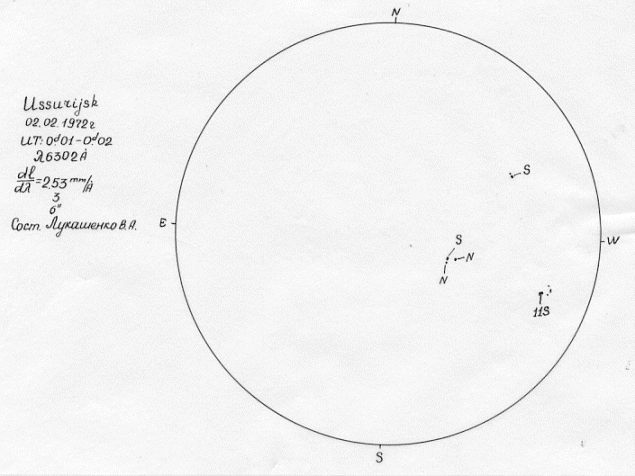 N
Ussurijsk
02.02.1972г
UT: 0ᵈ01-0ᵈ02
λ6302Å
dl/dλ=2,53 mm/Å
3
6"
Сост. Лукашенко В.А.
S
E
W
S
N
N
11S
S